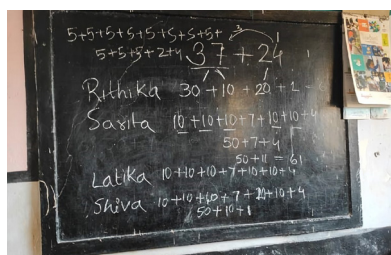 5+5+5+5+5+5+5+5+
5+5+5+2+4 37 + 24
Rithika 30+10+20+1
Sarita 10+10+10+7+10+10+4
50+7+4
50+11=61
Latika 10+10+10+7+10+10+4
Shiva 10+10+10+7+10+10+4
50+10+1